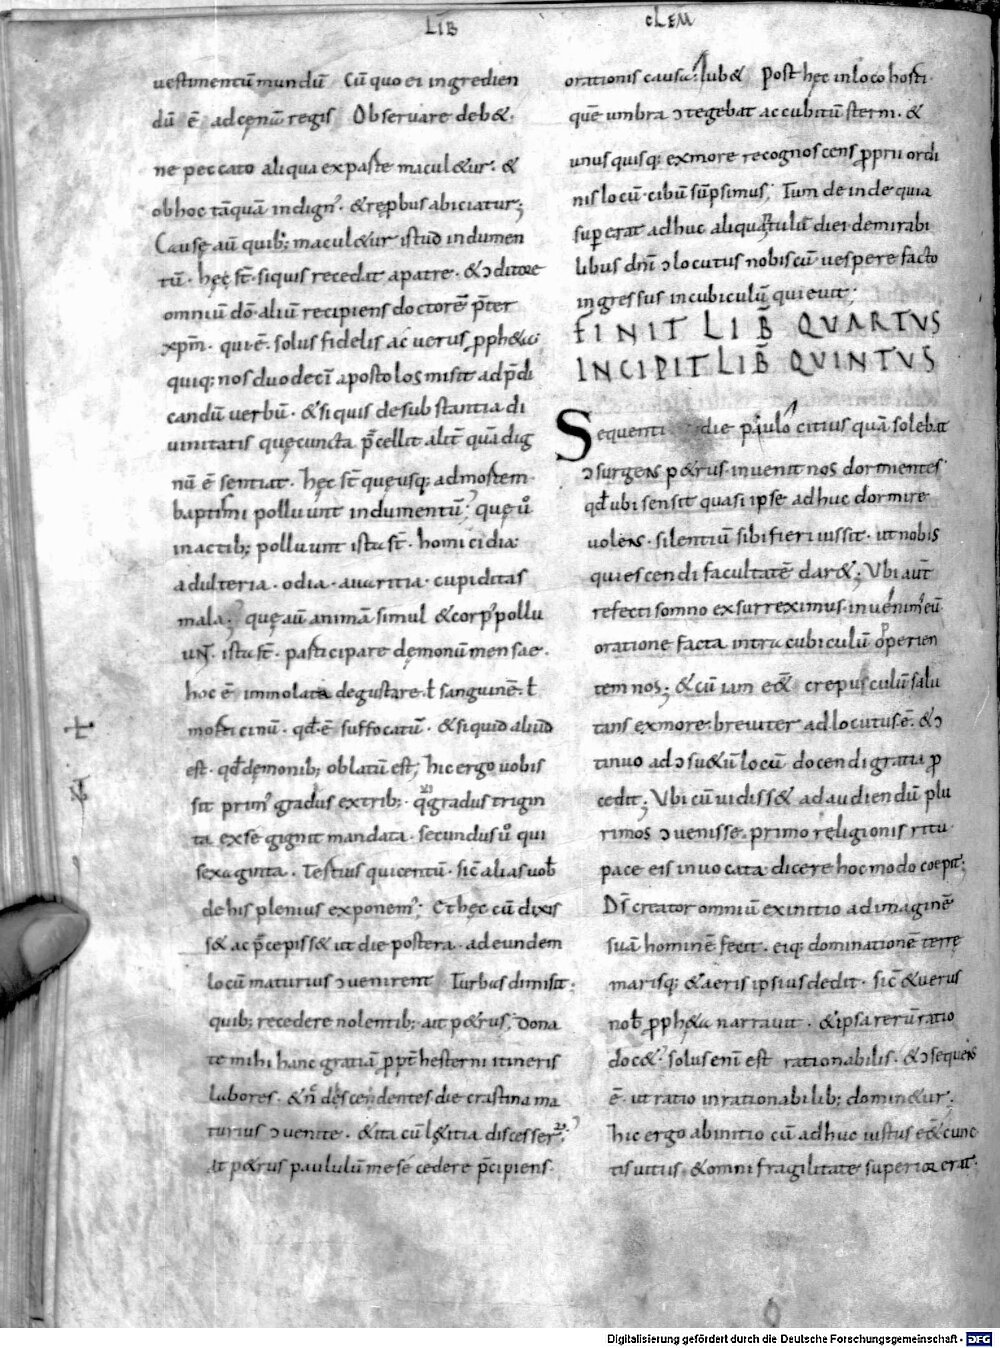 LIB CLEM
uestimentū mundū Cū quo ei ingredien
dū ē ad cenā regis Obseruare deb&.
ne peccato aliqua ex parte macul&ur. &
ob hoc tāquā indign᾽. & reprbus abiciatur;
Cause aū quib; macul&ur istud indumen
tū. hęc st̄. siquis recedat a patre. & ɔditore
omniū dō. aliū recipiens doctorē p̄ter
xpm̄. qui ē. solus fidelis ac uerus pph&a
quiq; nos duodecī apostolos misit ad p̄di
candū uerbū. & siquis de substantia di
uinitatis quę cuncta p̄cellit alit̄ quā dig
nū ē sentiat. hęc st̄ quę usq; ad mortem
baptismi polluunt indumentū; quę u°
in actib; polluunt ista st̄. homicidia
adulteria. odia. auaritia. cupiditas
mala; quę aū animā simul & corp᾽ pollu
unt. ista st̄. participare demonū mensae.
hoc ē immolata degustare. ł sanguinē. ł
morticinū. qđ ē suffocatū. & siquid aliud
est. qđ demonib; oblatū est; hic ergo uobis
sit prim᾽ gradus ex trib; qi gradus trigin
ta ex se gignit mandata. secundus u° qui
sexaginta. Tertius qui centū. sic̄ alias uob̄
de his plenius exponem᾽; Et hęc cū dixis
s& ac p̄cepiss& ut die postera. ad eundem
locū maturius ɔuenirent Turbas dimisit.
quib; recedere nolentib; ait p&rus, Dona
te mihi hanc gratiā ppt̄ hesterni itineris
labores. & n̄c descendentes die crastina ma
turius ɔuenite. & ita cū l&itia discesser̄.
At p&rus paululū me secedere p̄cipiens
orationis causa. iub& Post hęc in loco horti
quē umbra ɔtegebat accubitū sterni. &
unusquisq; ex more recognoscens pprii ordi
nis locū. cibū sūpsimus; Tum deinde quia
supererat adhuc aliquātulū diei de mirabi
libus dnī ɔlocutus nobiscū uespere facto
ingressus in cubiculū quieuit;
FINIT LIB̄ QUARTVS
INCIPIT LIB̄ QVINTVS
Sequenti die paulo citius quā solebat
ɔsurgens p&rus. inuenit nos dormientes
qđ ubi sensit quasi ipse adhuc dormire
uolens. silentiū sibi fieri iussit. ut nobis
quiescendi facultatē dar&; Vbi aut̄
refecti somno exsurreximus. inuenim᾽ eū
oratione facta intra cubiculū operien
tem nos; & cū iam e&̄ crepusculū salu
tans ex more. breuiter adlocutus ē. & ɔ
tinuo ad ɔsu&ū locū docendi gratia p
cedit; Vbi cū uidiss& ad audiendū plu
rimos ɔuenisse. primo religionis ritu
pace eis inuocata. dicere hoc modo coepit;
Ds̄ creator omniū ex initio ad imaginē
suā hominē fecit. eiq; dominationē terrę
marisq; & aeris ipsius dedit. sic̄ & uerus
nob̄ pph&a narrauit. & ipsa rerū ratio
doc&. solus enī est rationabilis. & ɔsequens
ē. ut ratio inrationabilib; domin&ur.
Hic ergo ab initio cū adhuc iustus e&̄ cunc
tis uitiis. & omni fragilitate superior erat.
Digitalisierung gefördert durch die Deutsche Forschungsgemeinschaft - DFG